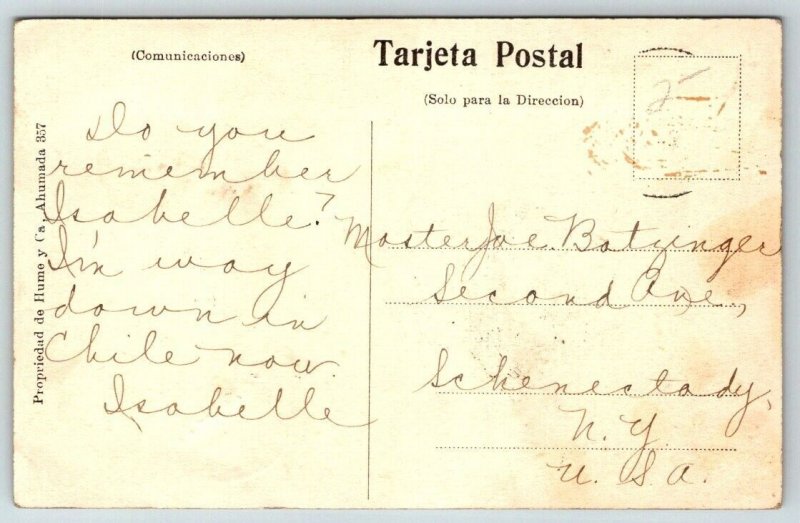 (Comunicaciones)
Tarjeta Postal
(Solo para la Direccion)
Propriedad de Hume y Ca, Ahumada 357
Do you
remember
Isabelle?
I'm way
down in
Chile now.
Isabelle
Master Joe Batzinger
Second Ave.,
Schenectady,
N. Y.
U. S. A.